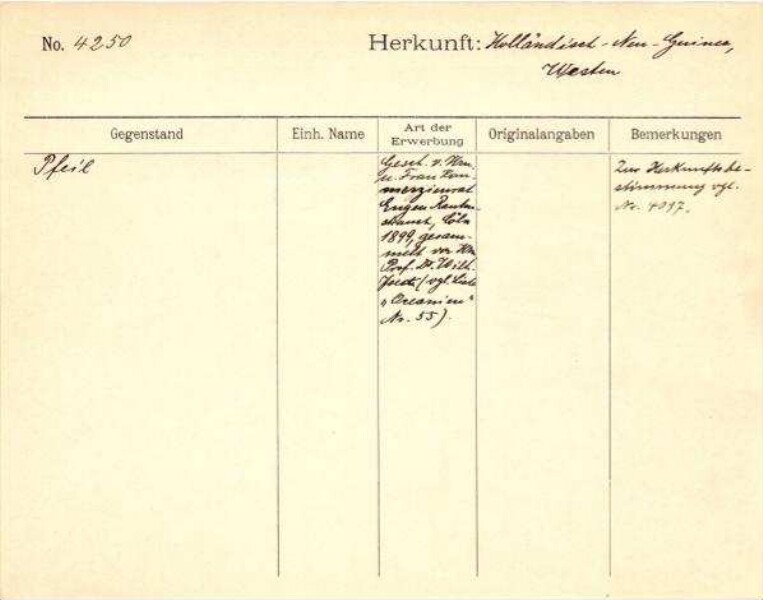 No. 4250 Herkunft: Holländisch-Neu-Guinea,
Westen
Gegenstand Einh. Name Art der Erwerbung Originalangaben Bemerkungen
Pfeil
Gesch. v. Hrn.
u. Frau Kom-
merzienrat
Eugen Rauten-
strauch, Cöln
1899, gesam-
melt von Hrn
Prof. Dr. Wilh.
Joest (vgl. Liste
„Oceanien"
Nr. 55).
Zur Herkunftsbe-
stimmung vgl.
Nr. 4097.